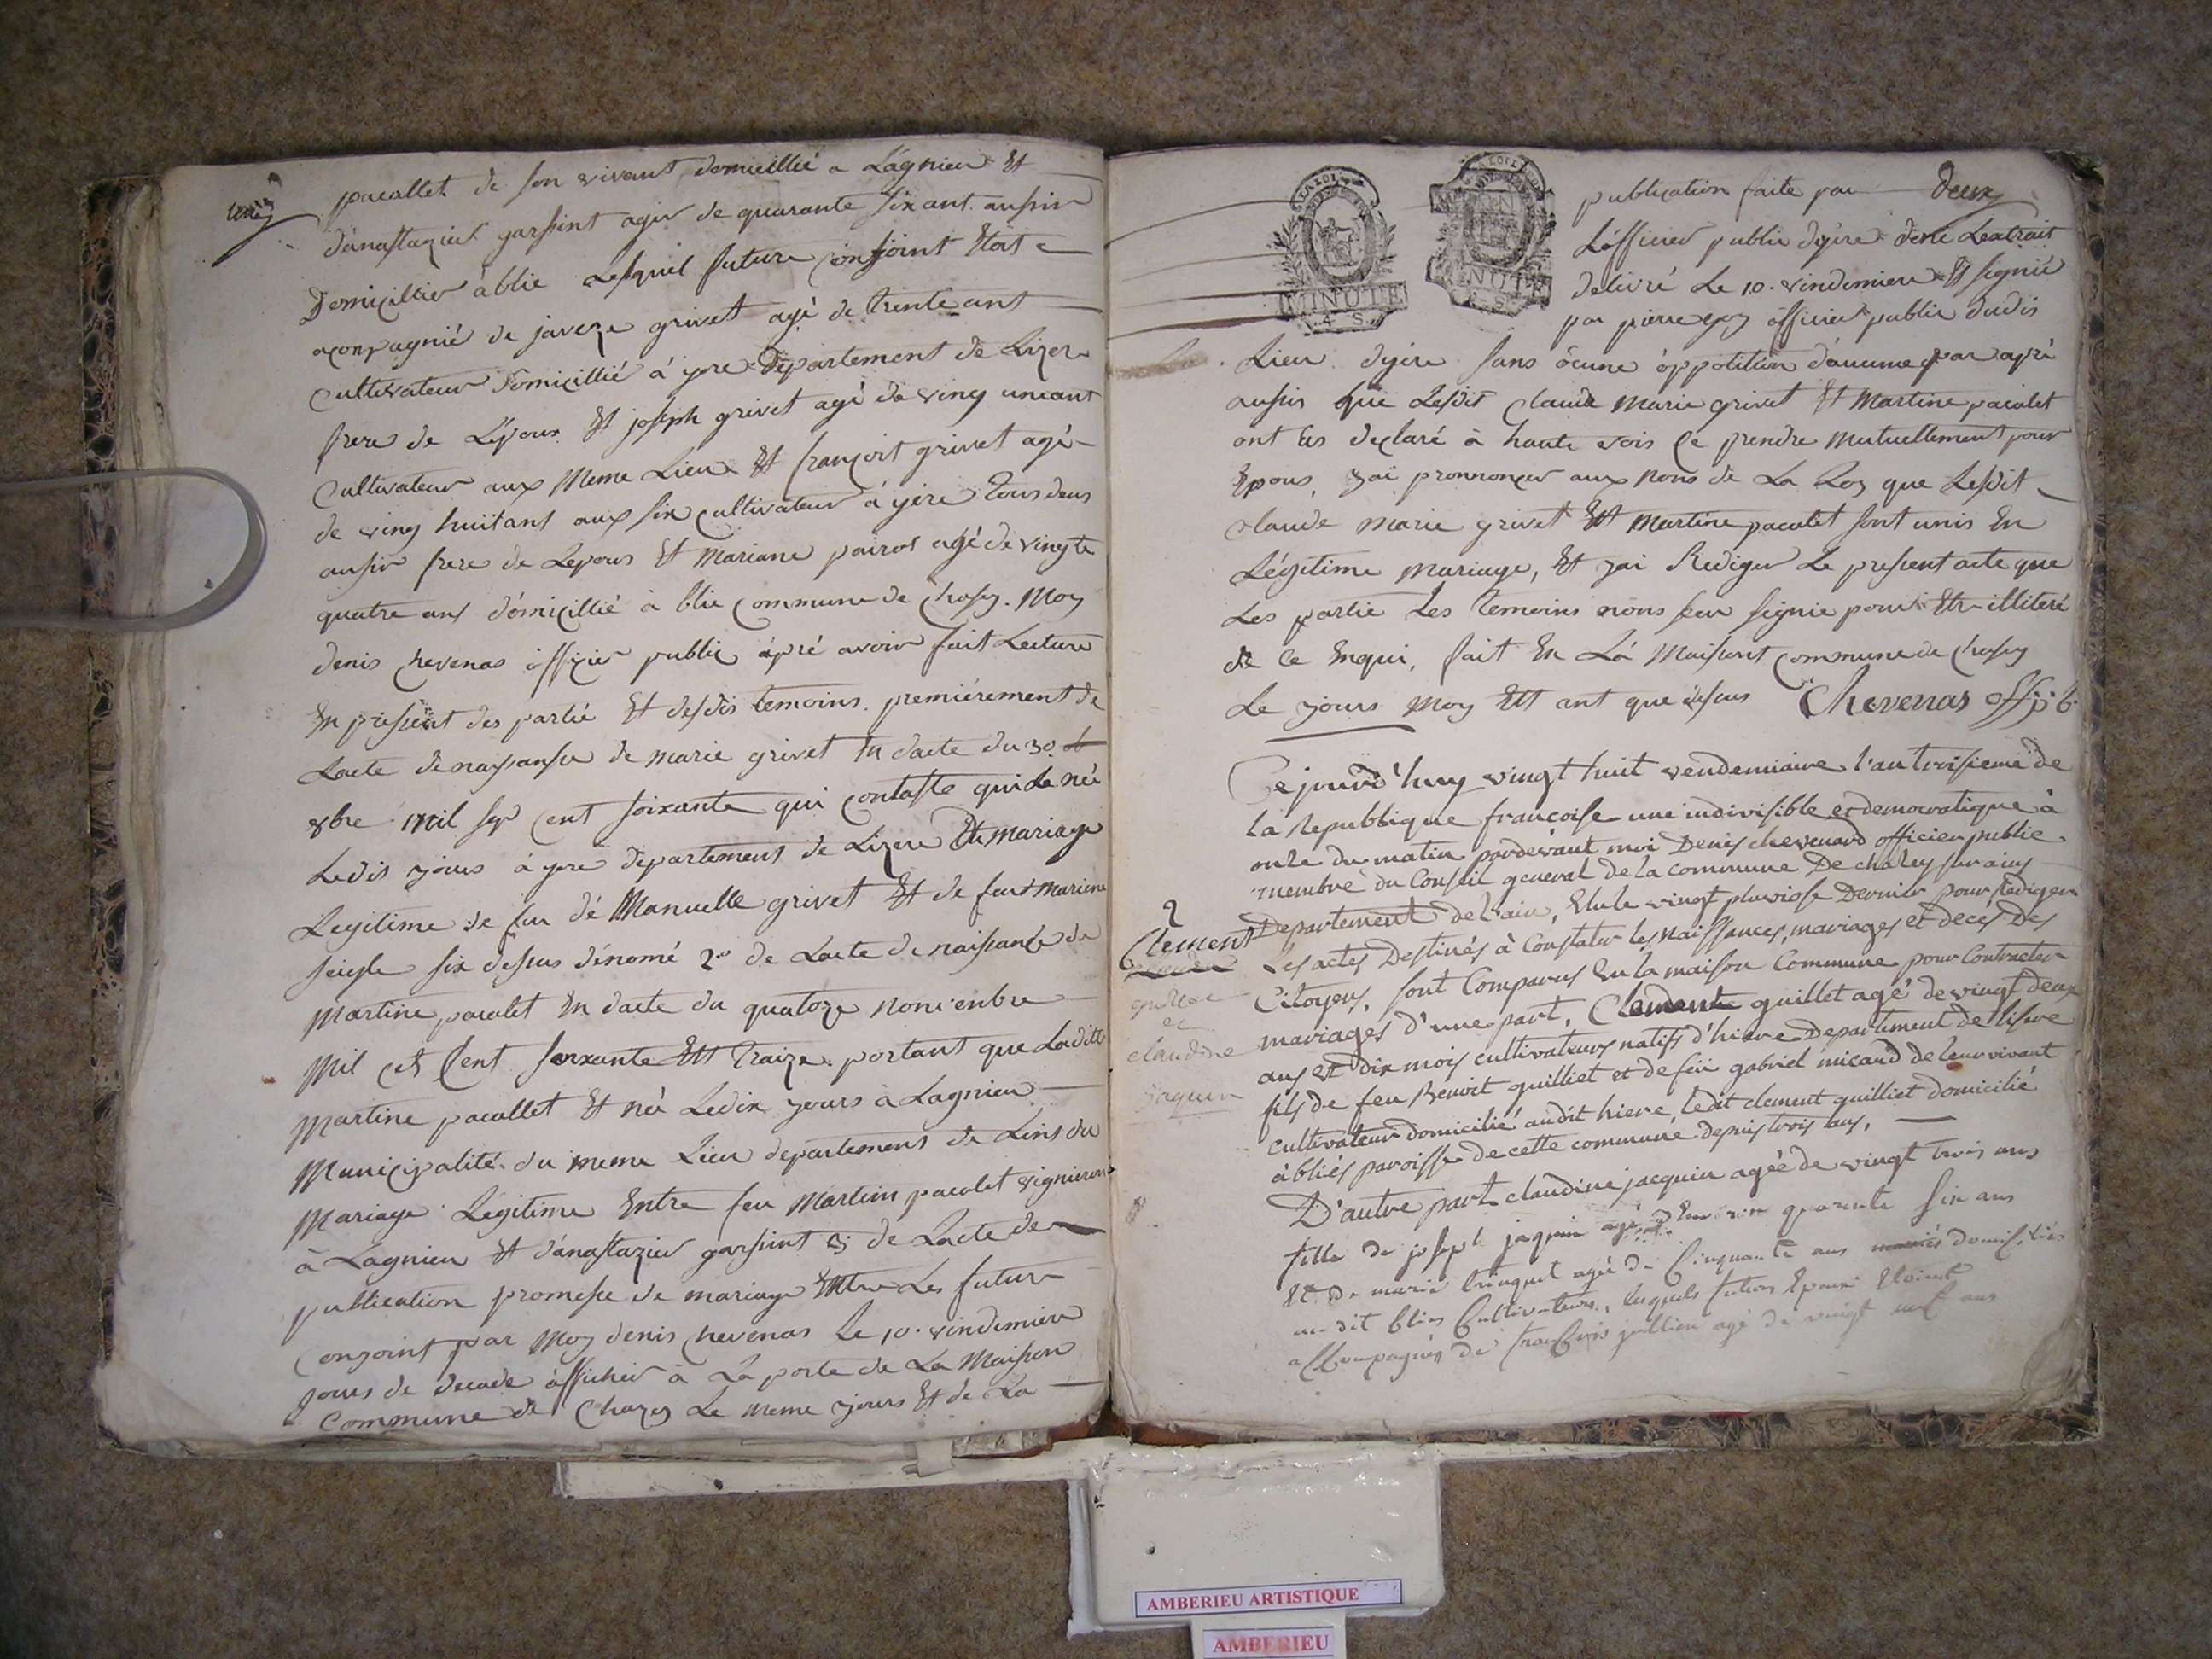 pacallet de son vivant domicillié a Lagnieu Et
d'anastazier garsint agir de quarante six ant aussir
Domicillier à blie Lesquel future Conjoint Etoit
acompagnié de javeze grivet agé de trente ant
Cultivateur domicillié à yere departement de Lizere
frere de L'époux Et joseph grivet agé de ving uneant
Cultivateur aux Meme Lieu Et françois grivet agé
de ving huitant aux six cultivateur à yère tous deus
aussir frere de Lepous Et Mariane pairot agé de vingte
quatre ans domicillié à blie Commune de Chasey. Moy
denis Chevenas officier public apré avoir fait Lecture
En present des partie Et desdis temoins. premiérement de
Lacte denaissanse de marie grivet En dacte du 30
8bre mil sep cent soixante qui Contaste quide née
Ledis yours à yere departement de Lizere Du mariage
Legitime de feu dé Manuelle grivet Et de feu Mariene
seigle six dessus dénomé 2° de Lacte de naissance de
Martine pacalet En dacte du quatoze novenbre
Mil Cet Cent soixante Ett traize portant que Laditte
Martine pacallet Et née Ledix yours à Lagnieu
Municipalité du meme Lieu departement de Lins du
Mariage Légitime Entre feu Martin pacalet vigneron
à Lagnieu Et d'anastazier garsint 3 de Lacte de
publication promesse de mariage Entre Les futur
Conjoint par Moy denis Chevenas Le 10. vindemiere
jours de decade afficher à La porte de La Maison
Commune de Chazey Le meme yours Et de La
deux
LA LOI
MINUTE
4 S.
MINUTE
publication faite par
L'officier public dyére dont Leatrait
delivré Le 10. vindemiere Et signié
par pierre officier public dudis
Lieu dyére sans ôcune oppotition d'aucune par apré
aussis que Lesdit Claude Marie grivet Et Martine pacalet
ont Eus declaré à haute vois Ce prendre Mutuellement pour
Epous, jai prononçer aux nons de La Loy que Lesdit
Claude Marie grivet Et Martine pacalet sont unis En
Légitime mariage, Et jai Rediger Le present acte que
Les partie Les temoins nons seu signie pour Etr illiteré
de Ce Enqui, fait En La Maisont Commune de Chasey
Le yours Moy Ett ant que desus Chevenas off pb
Cejourd'huy vingt huit vendemiaire l'an troisieme de
la Republique francoise une indivisible et democratique à
onze du matin pardevant moi Denis chevenard officier public
membre du Conseil general de la commune De chazey sur ains
Departement de l'ain, Elu le vingt pluviose Dernier pour Rediger
Les actes Destinés à Constater les Naissances, mariages et decés Des
Citoyens, sont Comparus En la maison Commune pour Contracter
mariages d'une part, Clement guillet agé de vingt deux
ans et dix mois cultivateurs natifs d'hiere Departement de lisere
fils de feu Benoit guilliet et de feüe gabriel micaud de leur vivant
cultivateur domicilié audit hiere, ledit clement guilliet domicilié
à bliés paroisse de cette commune depuis trois ans,
D'autre part claudine jacquin agée de vingt trois ans
fille de joseph jaquin agé Environ quarente six ans
Et de marie trinquet agée de Cinquante ans domiciliés
au dit blies Cultivateurs, lesquels futurs Epoux Etoient
accompagnés de françois jullien agé de vingt neuf ans
2
Clement
guillet
et
claudine
jaquin
AMBERIEU ARTISTIQUE
AMBERIEU